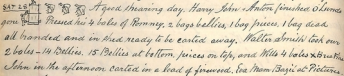 SAT 28 A good shearing day. Harry, John & Anton finished & Sunds
gone Pressed his 4 boles of Romney, 2 bags bellies, 1 bag pieces, 1 bag dead
all branded and in shed ready to be carted away. Walter Smith took our
2 boles - 14 Bellies, 15 Bellies at bottom, pieces on top, and Wlls 4 boles
John in the afternoon carted in a load of firewood, Eva Mum Bazil at Pictures